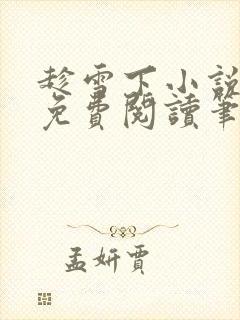 趁雪下小説
免費閱讀筆
孟妍賈